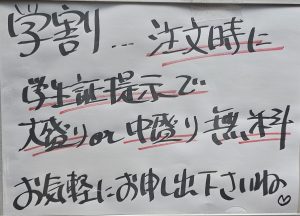 学割…注文時に
学生証提示で
大盛りor中盛り無料
お気軽にお申し出下さいね♡